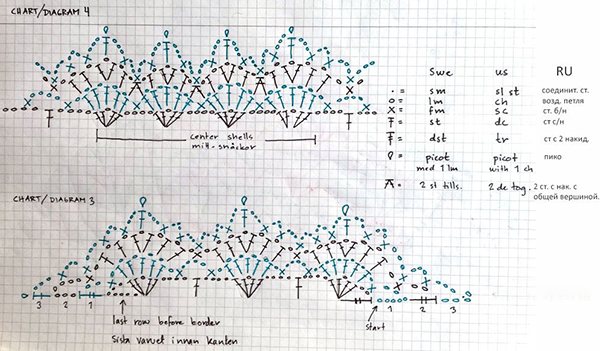 CHART/DIAGRAM 4
Swe us RU
• = sm sl st соединит. ст.
o = lm ch возд. петля
X = fm sc ст. б/н
= st dc ст с/н
= dst tr ст с 2 накид.
= picot picot пико
med 1 lm with 1 ch
= 2 st tills. 2 dc tog. 2 ст. с нак. с
общей вершиной.
center shells
mitt-snäckor
CHART/DIAGRAM 3
3 2 1
last row before border
Sista varvet innan kanten
start
1 2 3